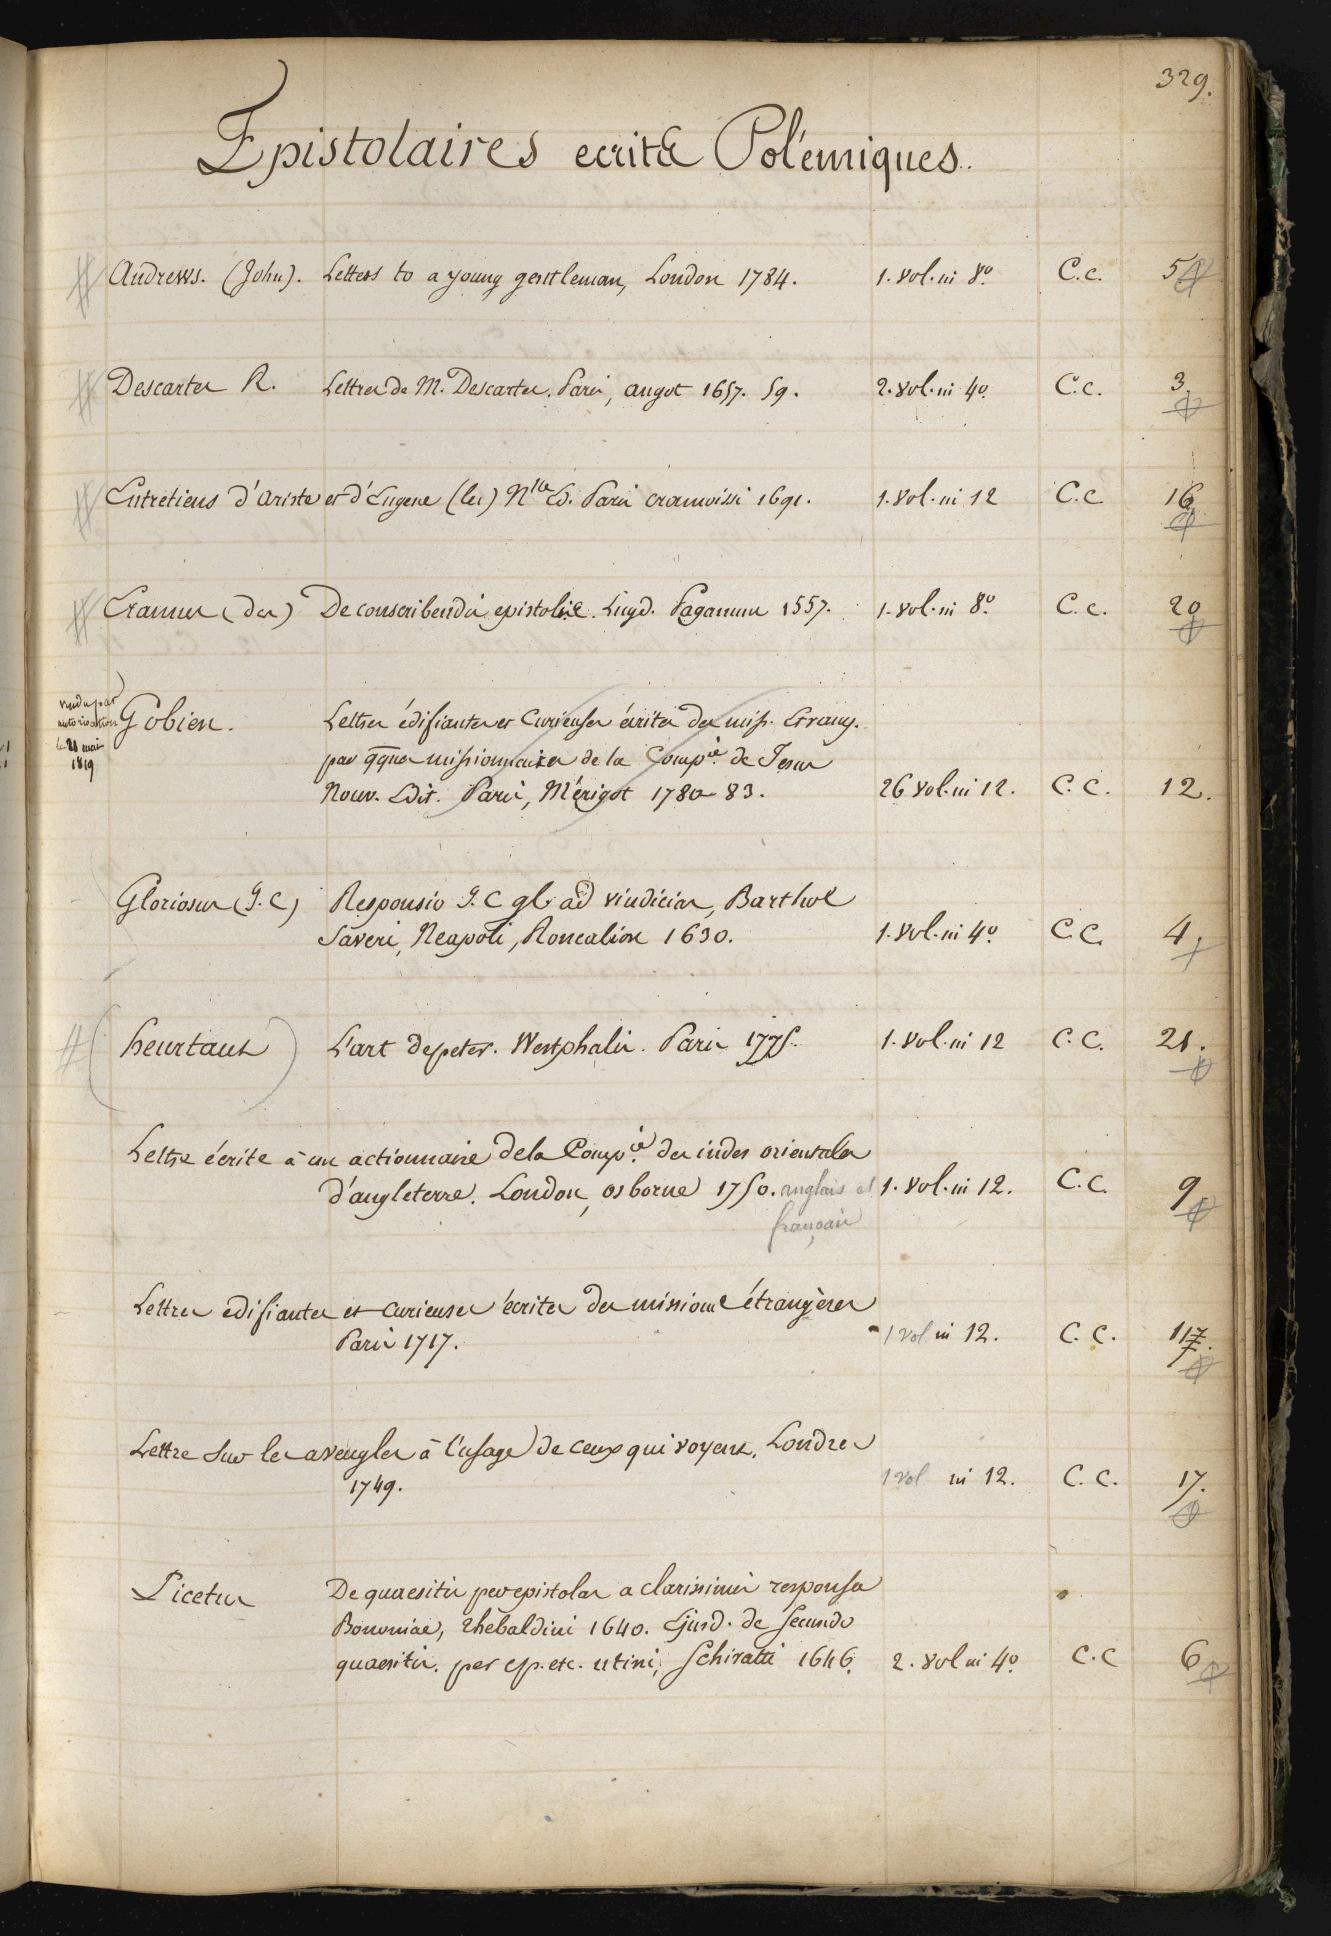 329.
Epistolaires ecrits Polémiques.
Andrews. (John). Letters to a young gentleman, London 1784. 1. vol. in 8.° C.c. 5
Descartes R. Lettres de M. Descartes. Paris, angot 1657. 59. 2. vol. in 4.° C.c. 3.
Entretiens d'ariste et d'Eugene (les) N.lle Ed. Paris cramoisi 1691. 1. vol. in 12 C.c 16
Erasmus (des) De conscribendis epistolis. Lugd. Paganum 1557. 1. vol. in 8.° C.c. 20
vendu par
autorisation
le 21 mai
1819
Gobien. Lettres édifiantes et Curieuses écrites des miss. Etrang.
par qques missionnaires de la Comp.ie de Jesus
Nouv. Edit. Paris, Mérigot 1780 83. 26 vol. in 12. C.C. 12.
Gloriosus (J. C) Responsio J. C gl. ad vindicias, Barthol
Saveri, Neapoli, Roncalion 1630. 1. vol. in 4.° C.C. 4.
heurtaut L'art de peter. Westphalie. Paris 1775. 1. vol. in 12 C.C. 21.
Lettre écrite à un actionnaire de la Comp.ie des indes orientales
d'angleterre. London, osborne 1750. anglais et 1. vol. in 12. C.C. 9
français
Lettres edifiantes et curieuses écrites des missions étrangères
Paris 1717. 1 vol in 12. C.C. 117.
Lettre sur les aveugles à l'usage de ceux qui voyent. Londres
1749. 1 vol in 12. C.C. 17.
Licetus De quaesitis per epistolas a clarissimis responsa
Bononiae, Thebaldini 1640. Ejusd. de Secundo
quaesitis. per ep. etc. utini, Schiratti 1646. 2. vol in 4° C.C 6